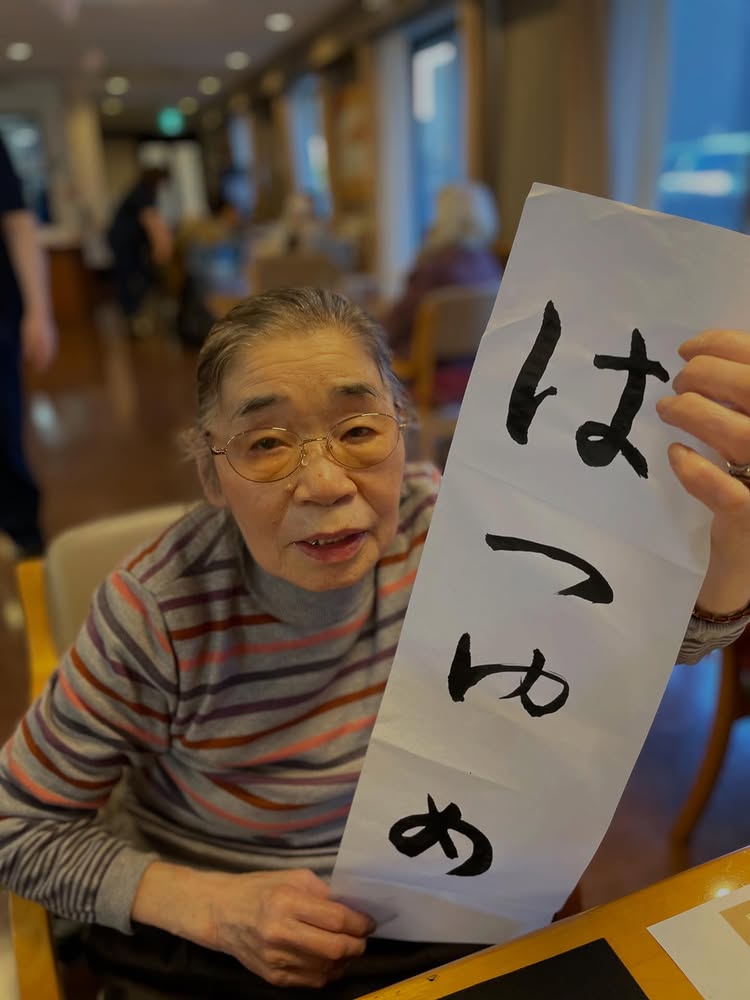 はつゆめ